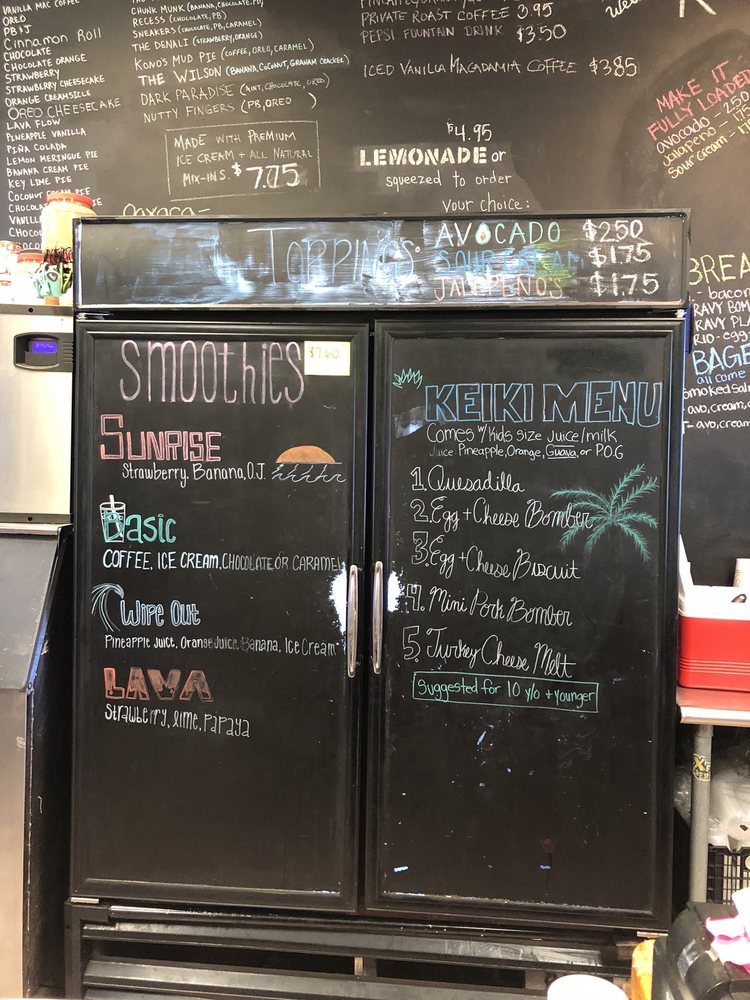 VANILLA MAC COFFEE
OREO
PB+J
Cinnamon Roll
CHOCOLATE
CHOCOLATE ORANGE
STRAWBERRY
STRAWBERRY CHEESECAKE
ORANGE CREAMSICLE
OREO CHEESECAKE
LAVA FLOW
PINEAPPLE VANILLA
PIÑA COLADA
LEMON MERINGUE PIE
BANANA CREAM PIE
KEY LIME PIE
COCONUT CREAM PIE
VANILLA
CHUNK MUNK (BANANA, CHOCOLATE, PB)
RECESS (CHOCOLATE, PB)
SNEAKERS (CHOCOLATE, PB, CARAMEL)
THE DENALI (STRAWBERRY, ORANGE)
KONOS MUD PIE (COFFEE, OREO, CARAMEL)
THE WILSON (BANANA, COCONUT, GRAHAM CRACKER)
DARK PARADISE (MINT, CHOCOLATE, OREO)
NUTTY FINGERS (PB, OREO )
MADE WITH PREMIUM
ICE CREAM + ALL NATURAL
MIX-INS. $7.75
Oaxaca-
PRIVATE ROAST COFFEE 3.95
PEPSI FOUNTAIN DRINK $3.50
ICED VANILLA MACADAMIA COFFEE $3.85
$4.95
LEMONADE or
squeezed to order
your choice:
MAKE IT
FULLY LOADED
avocado - 2.50
jalapeño - 1.75
sour cream -
TOPPINGS:
AVOCADO $2.50
SOUR CREAM $1.75
JALEPEÑO'S $1.75
SMOOTHIES $7.60
SUNRISE
Strawberry, Banana, O.J.
Basic
COFFEE, ICE CREAM, CHOCOLATE OR CARAMEL
Wipe Out
Pineapple Juice, Orange Juice, Banana, Ice Cream
LAVA
Strawberry, lime, Papaya
KEIKI MENU
Comes w/ Kids size Juice/milk
Juice: Pineapple, Orange, Guava, or P.O.G
1. Quesadilla
2. Egg + Cheese Bomber
3. Egg + Cheese Biscuit
4. Mini Pork Bomber
5. Turkey Cheese Melt
Suggested for 10 y/o + younger
BREA
- bacon
RAVY BOM
RAVY PLA
RIO - egg
BAGE
all come
smoked Sal
avo, cream,
- avo, cream